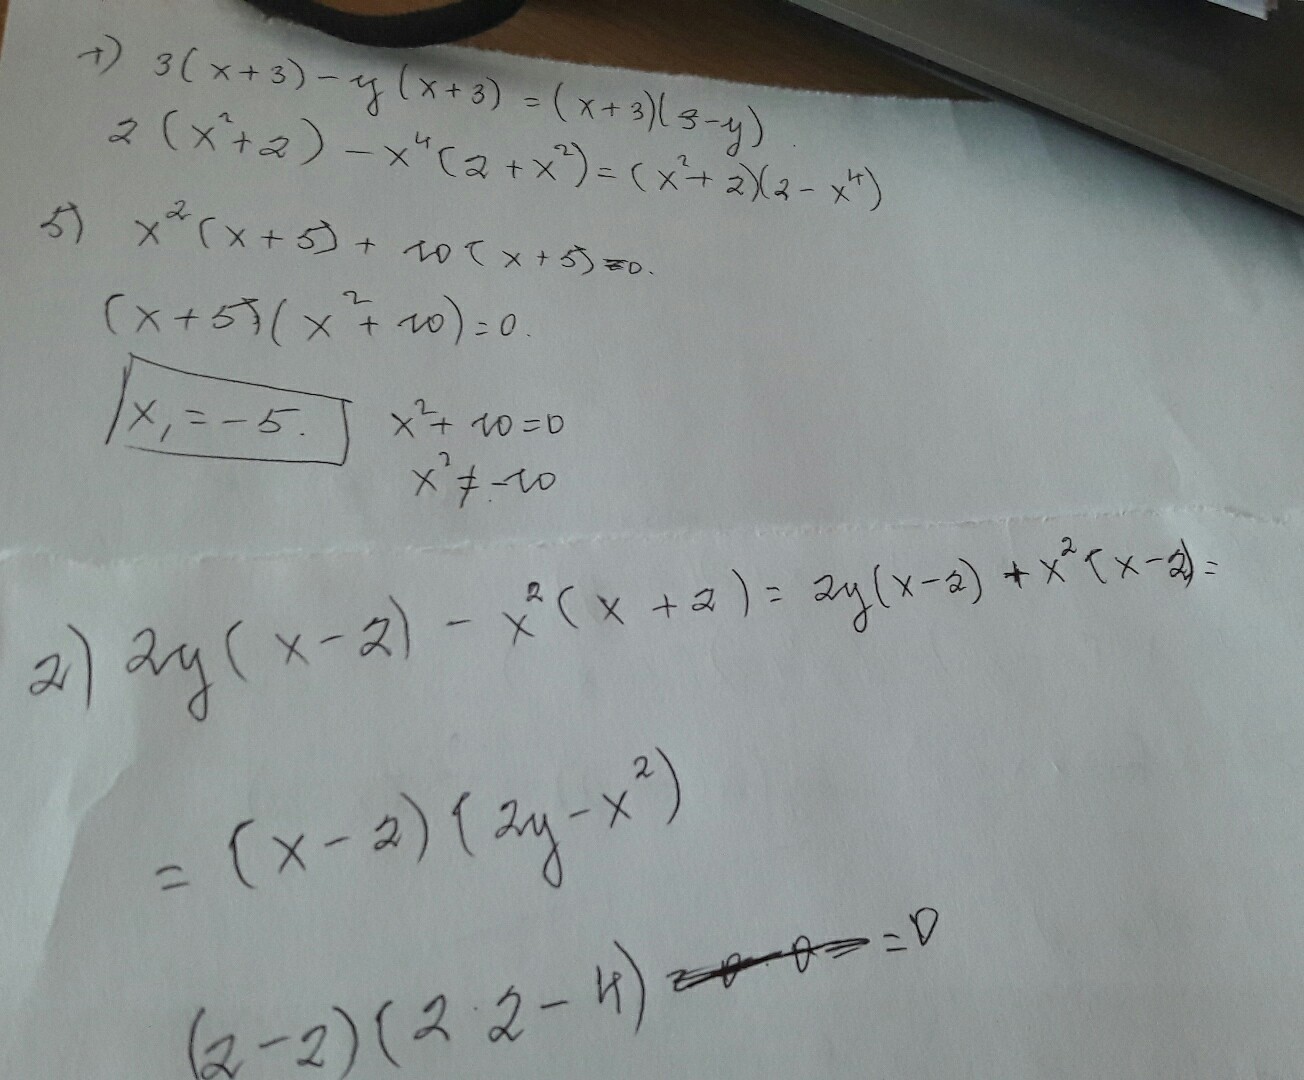 1) 3(x+3)-y(x+3)=(x+3)(3-y).
2(x²+2)-x⁴(2+x²)=(x²+2)(2-x⁴)
5) x²(x+5)+10(x+5)=0.
(x+5)(x²+10)=0.
x₁=-5. x²+10=0
x²≠-10
2) 2y(x-2)-x²(x+2)=2y(x-2)+x²(x-2)=
=(x-2)(2y-x²)
(2-2)(2·2-4)=0